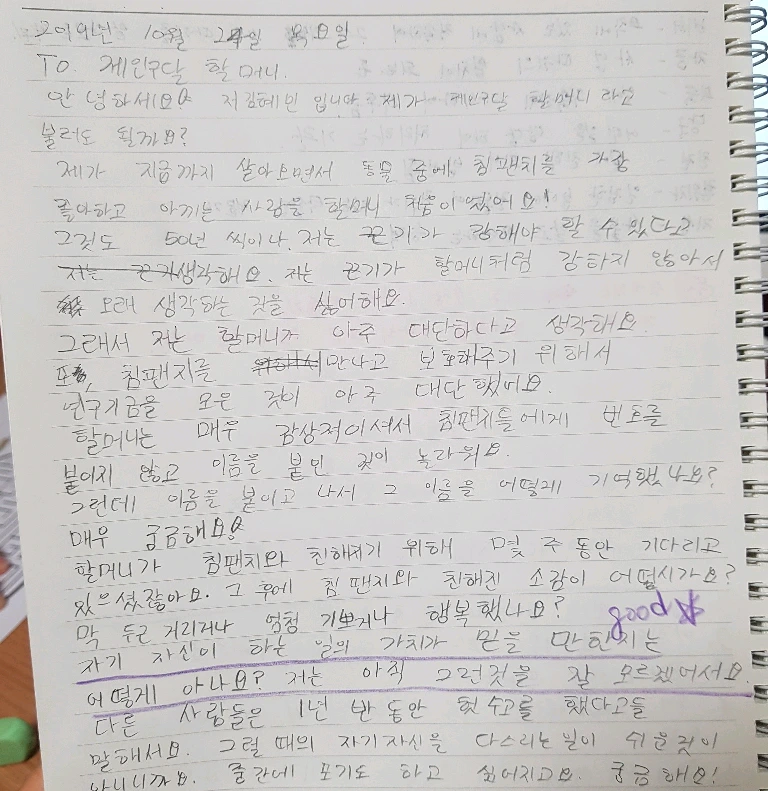 2019년 10월 24일 목요일
To. 제인구달 할머니.
안녕하세요? 저 김혜인 입니다. 제가 제인구달 할머니 라고
불러도 될까요?
제가 지금까지 살아오면서 동물 중에 침팬치를 가장
좋아하고 아끼는 사람을 할머니 처음이였어요!
그것도 50년 씩이나. 저는 끈기가 강해야 할 수 있다고
생각해요. 저는 끈기가 할머니처럼 강하지 않아서
오래 생각하는 것을 싫어해요.
그래서 저는 할머니가 아주 대단하다고 생각해요.
또, 침팬지를 만나고 보호해주기 위해서
연구기금을 모은 것이 아주 대단했어요.
할머니는 매우 감상적이셔서 침팬지들에게 번호를
붙이지 않고 이름을 붙인 것이 놀라워요.
그런데 이름을 붙이고 나서 그 이름을 어떻게 기억했나요?
매우 궁금해요!
할머니가 침팬치와 친해지기 위해 몇 주 동안 기다리고
있으셨잖아요. 그 후에 침팬지와 친해진 소감이 어떻시가요?
막 두근거리거나 엄청 기쁘거나 행복했나요? good
자기 자신이 하는 일의 가치가 믿을 만한지는
어떻게 아나요? 저는 아직 그런것을 잘 모르겠어서요.
다른 사람들은 1년 반 동안 헛수고를 했다고들
말해서요. 그럴 때의 자기자신을 다스리는 일이 쉬운것이
아니니까요. 중간에 포기도 하고 싶어지고요. 궁금해요!